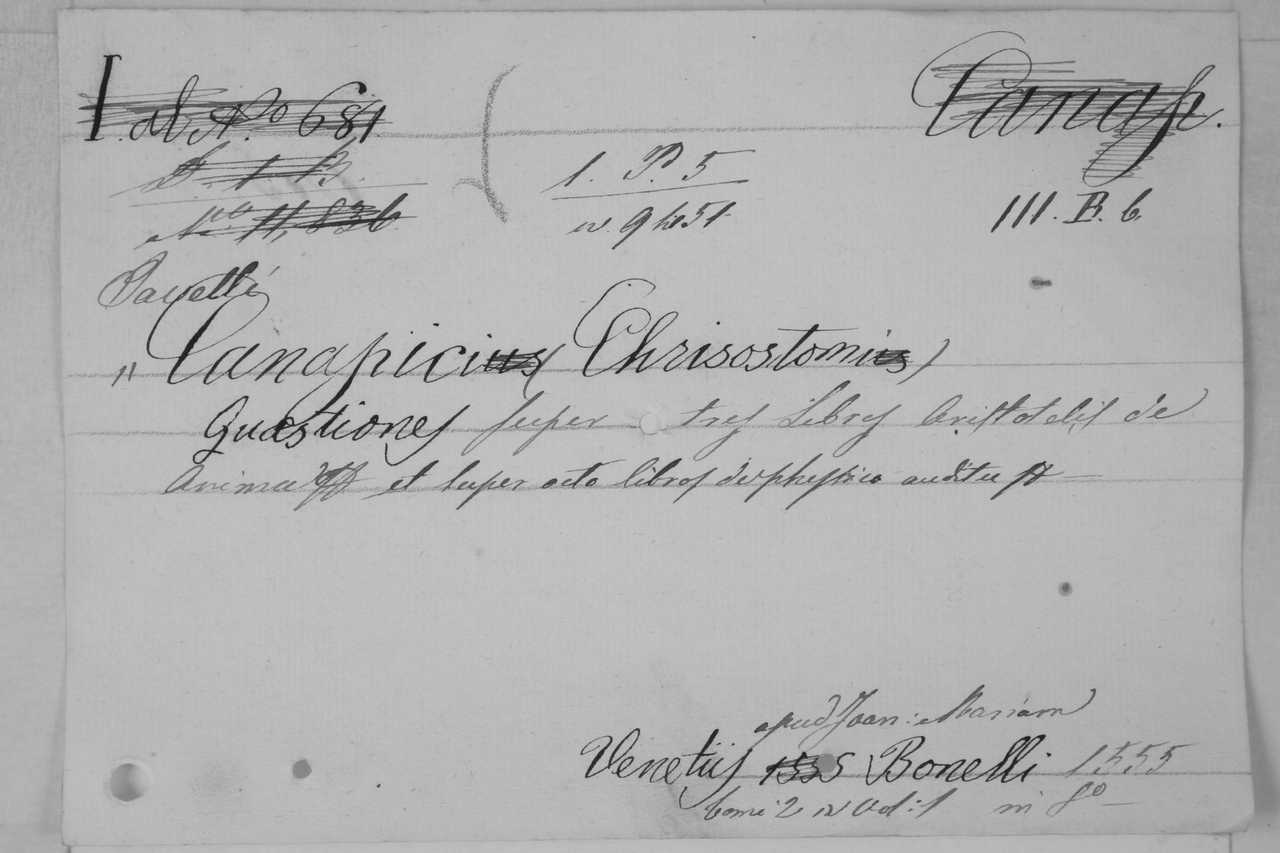 I. ab No. 681. Canap.
D. 1. B. 1. P. 5
No. 11,836 9451 III. B. 6.
Javelli
„ Canapicius (Chrisostomius)
Quæstiones super tres Libros Aristotelis de
Anima et super octo libros de physico auditu
apud Joan: Mariam
Venetiis 1555 Bonelli 1555
tomi 2 in Vol: 1 in 8o